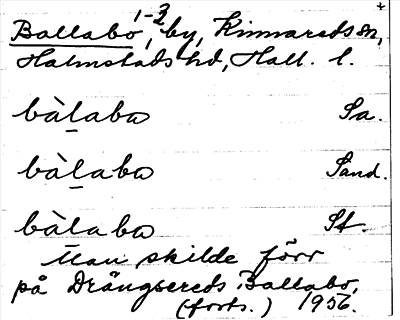 Ballabo 1-3, by, Kinnareds sn,
Halmstads hd, Hall. l.
bàlabo Sa.
bàlabo Sand.
bàlabo St.
Man skilde förr
på Drängsereds Ballabo,
(forts.) 1956.